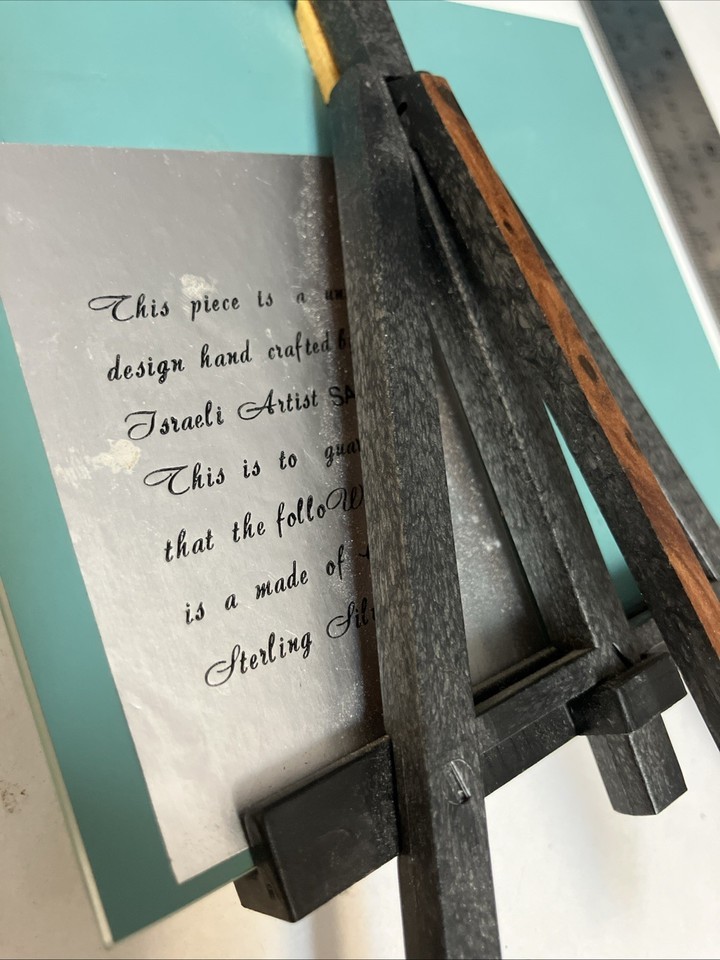 This piece is a
design hand crafted
Israeli Artist
This is to
that the folloW
is a made of
Sterling